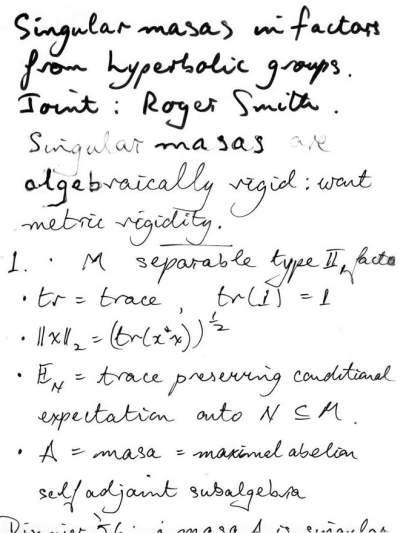 Singular masas in factors
from hyperbolic groups.
Joint : Roger Smith.
Singular masas are
algebraically rigid : want
metric rigidity.
1. · M separable type II₁ facto
· tr = trace , tr(1) = 1
· ||x||₂ = (tr(x*x))^{1/2}
· 𝔼_N = trace preserving conditional
expectation onto N ⊆ M.
· A = masa = maximal abelian
self adjoint subalgebra
Dixmier '54 : a masa A is singular